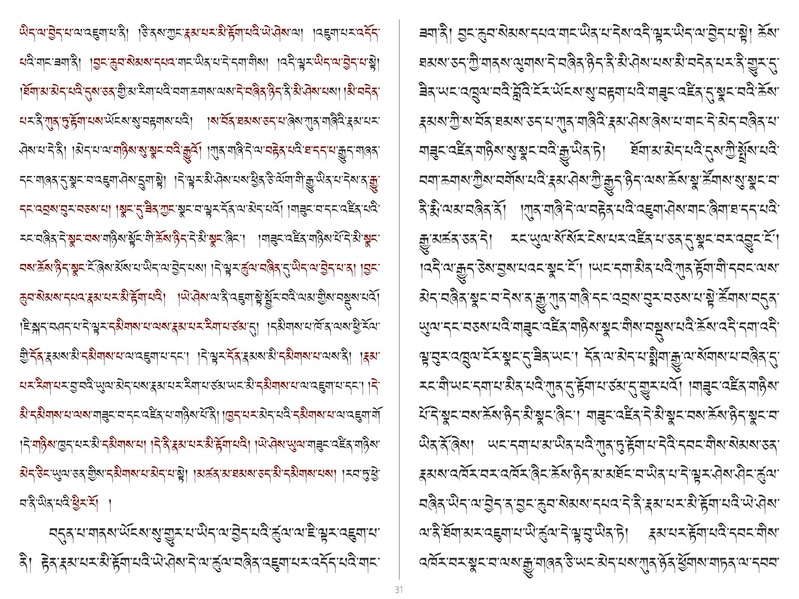 ཡིད་ལ་བྱེད་པ་ལ་འཇུག་པ་ནི། །ཅི་ནས་ཀྱང་རྣམ་པར་མི་རྟོག་པའི་ཡེ་ཤེས་ལ། །འཇུག་པར་འདོད་
པའི་གང་ཟག་ནི། །བྱང་ཆུབ་སེམས་དཔའ་གང་ཡིན་པ་དེ་དག་གིས། །འདི་ལྟར་ཡིད་ལ་བྱེད་པ་སྟེ།
།ཐོག་མ་མེད་པའི་དུས་ཅན་གྱི་མ་རིག་པའི་བག་ཆགས་ལས་དེ་བཞིན་ཉིད་ནི་མི་ཤེས་པས། །མི་བདེན་
པར་ནི་ཀུན་ཏུ་རྟོག་པས་ཡོངས་སུ་བརྟགས་པའི། །ས་བོན་ཐམས་ཅད་པ་ཞེས་ཀུན་གཞིའི་རྣམ་པར་
ཤེས་པ་དེ་ནི། །མེད་པ་ལ་གཉིས་སུ་སྣང་བའི་རྒྱུའོ། །ཀུན་གཞི་དེ་ལ་བརྟེན་པའི་ཐ་དད་པ་རྒྱུད་གཞན་
དང་གཞན་དུ་སྣང་བ་འཇུག་ཤེས་དྲུག་སྟེ། །དེ་ལྟར་མི་ཤེས་པས་ཕྱིན་ཅི་ལོག་གི་རྒྱུ་ཡིན་པ་དེས་ན་རྒྱུ་
དང་འབྲས་བུར་བཅས་པ། །སྣང་དུ་ཟིན་ཀྱང་སྣང་བ་ལྟར་དོན་ལ་མེད་པའོ། །གཟུང་བ་དང་འཛིན་པའི་
རང་བཞིན་དེ་སྣང་བས་གཉིས་སྟོང་གི་ཆོས་ཉིད་དེ་མི་སྣང་ཞིང་། །གཟུང་འཛིན་གཉིས་པོ་དེ་མི་སྣང་
བས་ཆོས་ཉིད་སྣང་ངོ་ཞེས་མོས་པ་ཡིད་ལ་བྱེད་པས། །དེ་ལྟར་ཚུལ་བཞིན་དུ་ཡིད་ལ་བྱེད་པ་ན། །བྱང་
ཆུབ་སེམས་དཔའ་རྣམ་པར་མི་རྟོག་པའི། །ཡེ་ཤེས་ལ་ནི་འཇུག་སྟེ་སྦྱོར་བའི་ལམ་གྱིས་བསྡུས་པའོ།
།ཇི་སྐད་བཤད་པ་དེ་ལྟར་དམིགས་པ་ལས་རྣམ་པར་རིག་པ་ཙམ་དུ། །དམིགས་པ་ཁོ་ན་ལས་ཕྱི་རོལ་
གྱི་དོན་རྣམས་མི་དམིགས་པ་ལ་འཇུག་པ་དང་། །དེ་ལྟར་དོན་རྣམས་མི་དམིགས་པ་ལས་ནི། །རྣམ་
པར་རིག་པར་བྱ་བའི་ཡུལ་མེད་པས་རྣམ་པར་རིག་པ་ཙམ་ཡང་མི་དམིགས་པ་ལ་འཇུག་པ་དང་། །དེ་
མི་དམིགས་པ་ལས་གཟུང་བ་དང་འཛིན་པ་གཉིས་པོ་ནི། །ཁྱད་པར་མེད་པའི་དམིགས་པ་ལ་འཇུག་གོ
།དེ་གཉིས་ཁྱད་པར་མི་དམིགས་པ། །དེ་ནི་རྣམ་པར་མི་རྟོག་པའི། །ཡེ་ཤེས་ཡུལ་གཟུང་འཛིན་གཉིས་
མེད་ཅིང་ཡུལ་ཅན་གྱིས་དམིགས་པ་མེད་པ་སྟེ། །མཚན་མ་ཐམས་ཅད་མི་དམིགས་པས། །རབ་ཏུ་ཕྱེ་
བ་ནི་ཡིན་པའི་ཕྱིར་རོ། །
བདུན་པ་གནས་ཡོངས་སུ་གྱུར་པ་ཡིད་ལ་བྱེད་པའི་ཚུལ་ལ་ཇི་ལྟར་འཇུག་པ་
ནི། རྟེན་རྣམ་པར་མི་རྟོག་པའི་ཡེ་ཤེས་དེ་ལ་ཚུལ་བཞིན་འཇུག་པར་འདོད་པའི་གང་
ཟག་ནི། བྱང་ཆུབ་སེམས་དཔའ་གང་ཡིན་པ་དེས་འདི་ལྟར་ཡིད་ལ་བྱེད་པ་སྟེ། ཆོས་
ཐམས་ཅད་ཀྱི་གནས་ལུགས་དེ་བཞིན་ཉིད་ནི་མི་ཤེས་པས་མི་བདེན་པར་ནི་གྱུར་དུ་
ཟིན་ཡང་འཁྲུལ་བའི་བློའི་ངོར་ཡོངས་སུ་བརྟག་པའི་གཟུང་འཛིན་དུ་སྣང་བའི་ཆོས་
རྣམས་ཀྱི་ས་བོན་ཐམས་ཅད་པ་ཀུན་གཞིའི་རྣམ་ཤེས་ཞེས་པ་གང་དེ་མེད་བཞིན་པ་
གཟུང་འཛིན་གཉིས་སུ་སྣང་བའི་རྒྱུ་ཡིན་ཏེ། ཐོག་མ་མེད་པའི་དུས་ཀྱི་སྤྲོས་པའི་
བག་ཆགས་ཀྱིས་བགོས་པའི་རྣམ་ཤེས་ཀྱི་རྒྱུད་ཉིད་ལས་ཆོས་སྣ་ཚོགས་སུ་སྣང་བ་
ནི་རྨི་ལམ་བཞིན་ནོ། །ཀུན་གཞི་དེ་ལ་བརྟེན་པའི་འཇུག་ཤེས་གང་ཞིག་ཐ་དད་པའི་
རྒྱུ་མཚན་ཅན་དེ། རང་ཡུལ་སོ་སོར་ངེས་པར་འཛིན་པ་ཅན་དུ་སྣང་བར་འབྱུང་ངོ་།
།འདི་ལ་རྒྱུད་ཅེས་བྱས་པའང་སྣང་ངོ་། །ཡང་དག་མིན་པའི་ཀུན་རྟོག་གི་དབང་ལས་
མེད་བཞིན་སྣང་བ་དེས་ན་རྒྱུ་ཀུན་གཞི་དང་འབྲས་བུར་བཅས་པ་སྟེ་ཚོགས་བདུན་
ཡུལ་དང་བཅས་པའི་གཟུང་འཛིན་གཉིས་སྣང་གིས་བསྡུས་པའི་ཆོས་འདི་དག་འདི་
ལྟ་བུར་འཁྲུལ་ངོར་སྣང་དུ་ཟིན་ཡང་། དོན་ལ་མེད་པ་སྒྱུ་མ་ལ་སོགས་པ་བཞིན་དུ་
རང་གི་ཡང་དག་པ་མིན་པའི་ཀུན་དུ་རྟོག་པ་ཙམ་དུ་གྱུར་པའོ། །གཟུང་འཛིན་གཉིས་
པོ་དེ་སྣང་བས་ཆོས་ཉིད་མི་སྣང་ཞིང་། གཟུང་འཛིན་དེ་མི་སྣང་བས་ཆོས་ཉིད་སྣང་བ་
ཡིན་ནོ་ཞེས། ཡང་དག་པ་མ་ཡིན་པའི་ཀུན་ཏུ་རྟོག་པ་དེའི་དབང་གིས་སེམས་ཅན་
རྣམས་འཁོར་བར་འཁོར་ཞིང་ཆོས་ཉིད་མ་མཐོང་བ་ཡིན་པ་དེ་ལྟར་ཤེས་ཤིང་ཚུལ་
བཞིན་ཡིད་ལ་བྱེད་ན་བྱང་ཆུབ་སེམས་དཔའ་དེ་ནི་རྣམ་པར་མི་རྟོག་པའི་ཡེ་ཤེས་
ལ་ནི་ཐོག་མར་འཇུག་པ་ཡི་ཚུལ་དེ་ལྟ་བུ་ཡིན་ཏེ། རྣམ་པར་རྟོག་པའི་དབང་གིས་
འཁོར་བར་སྣང་བ་ལས་རྒྱུ་གཞན་ཅི་ཡང་མེད་པས་ཀུན་ཉོན་ཕྱོགས་གཏན་ལ་དབབ་
31